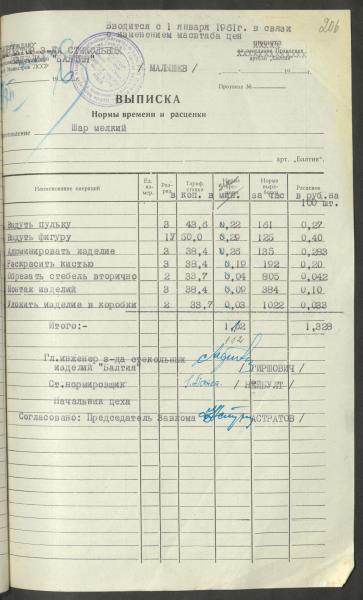 Вводится с 1 января 1961г. в связи
с изменением масштаба цен
206
З-ДА СТЕКОЛЬНЫХ
"БАЛТИЯ"
/ МАЛЫШЕВ /
артели „Балтик"
19 г.
Протокол №
ВЫПИСКА
Нормы времени и расценки
Шар мелкий
арт. „Балтик".
Наименование операций Ед. измер. Разряд Тариф. ставка Норма Норма выработки Расценок
в коп. в мин. за час в руб. на
100 шт.
Выдуть пульку 3 43,6 0,22 161 0,27
Выдуть фигуру 1У 50,0 0,29 125 0,40
Алюминировать изделие 3 38,4 0,26 135 0,283
Раскрасить кистью 3 38,4 0,19 192 0,20
Обрезать стебель вторично 2 33,7 0,04 805 0,042
Монтаж изделий 3 38,4 0,09 384 0,10
Уложить изделие в коробки 2 33,7 0,03 1022 0,033
Итого:- 1,328
112
Гл.инженер з-да стекольных
изделий "Балтия" / ГИРШОВИЧ /
Ст.нормировщик
Начальник цеха
Согласовано: Председатель Завкома АСТРАТОВ /